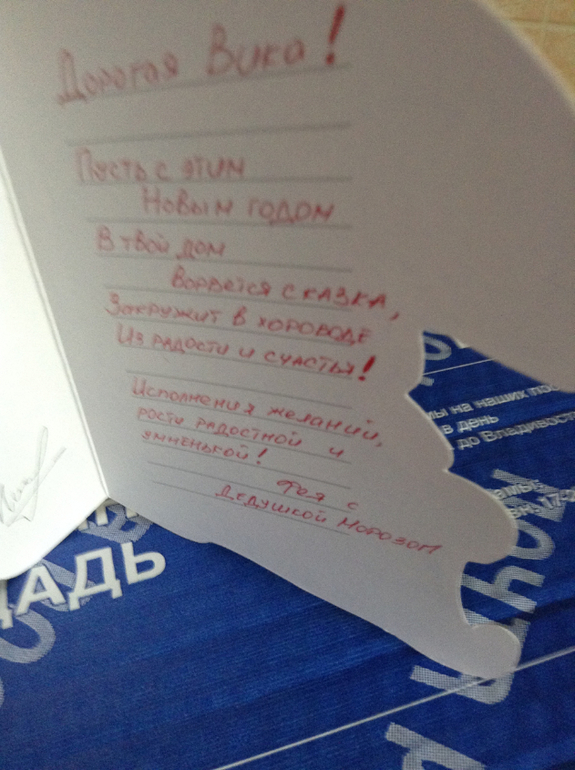 Дорогая Вика!
Пусть с этим
Новым годом
В твой дом
Ворвется сказка,
Закружит в хороводе
Из радости и счастья!
Исполнения желаний,
рости радостной и
умненькой!
Фея с
Дедушкой Морозом
мы на наших
в день
до Владивосто
АДЬ